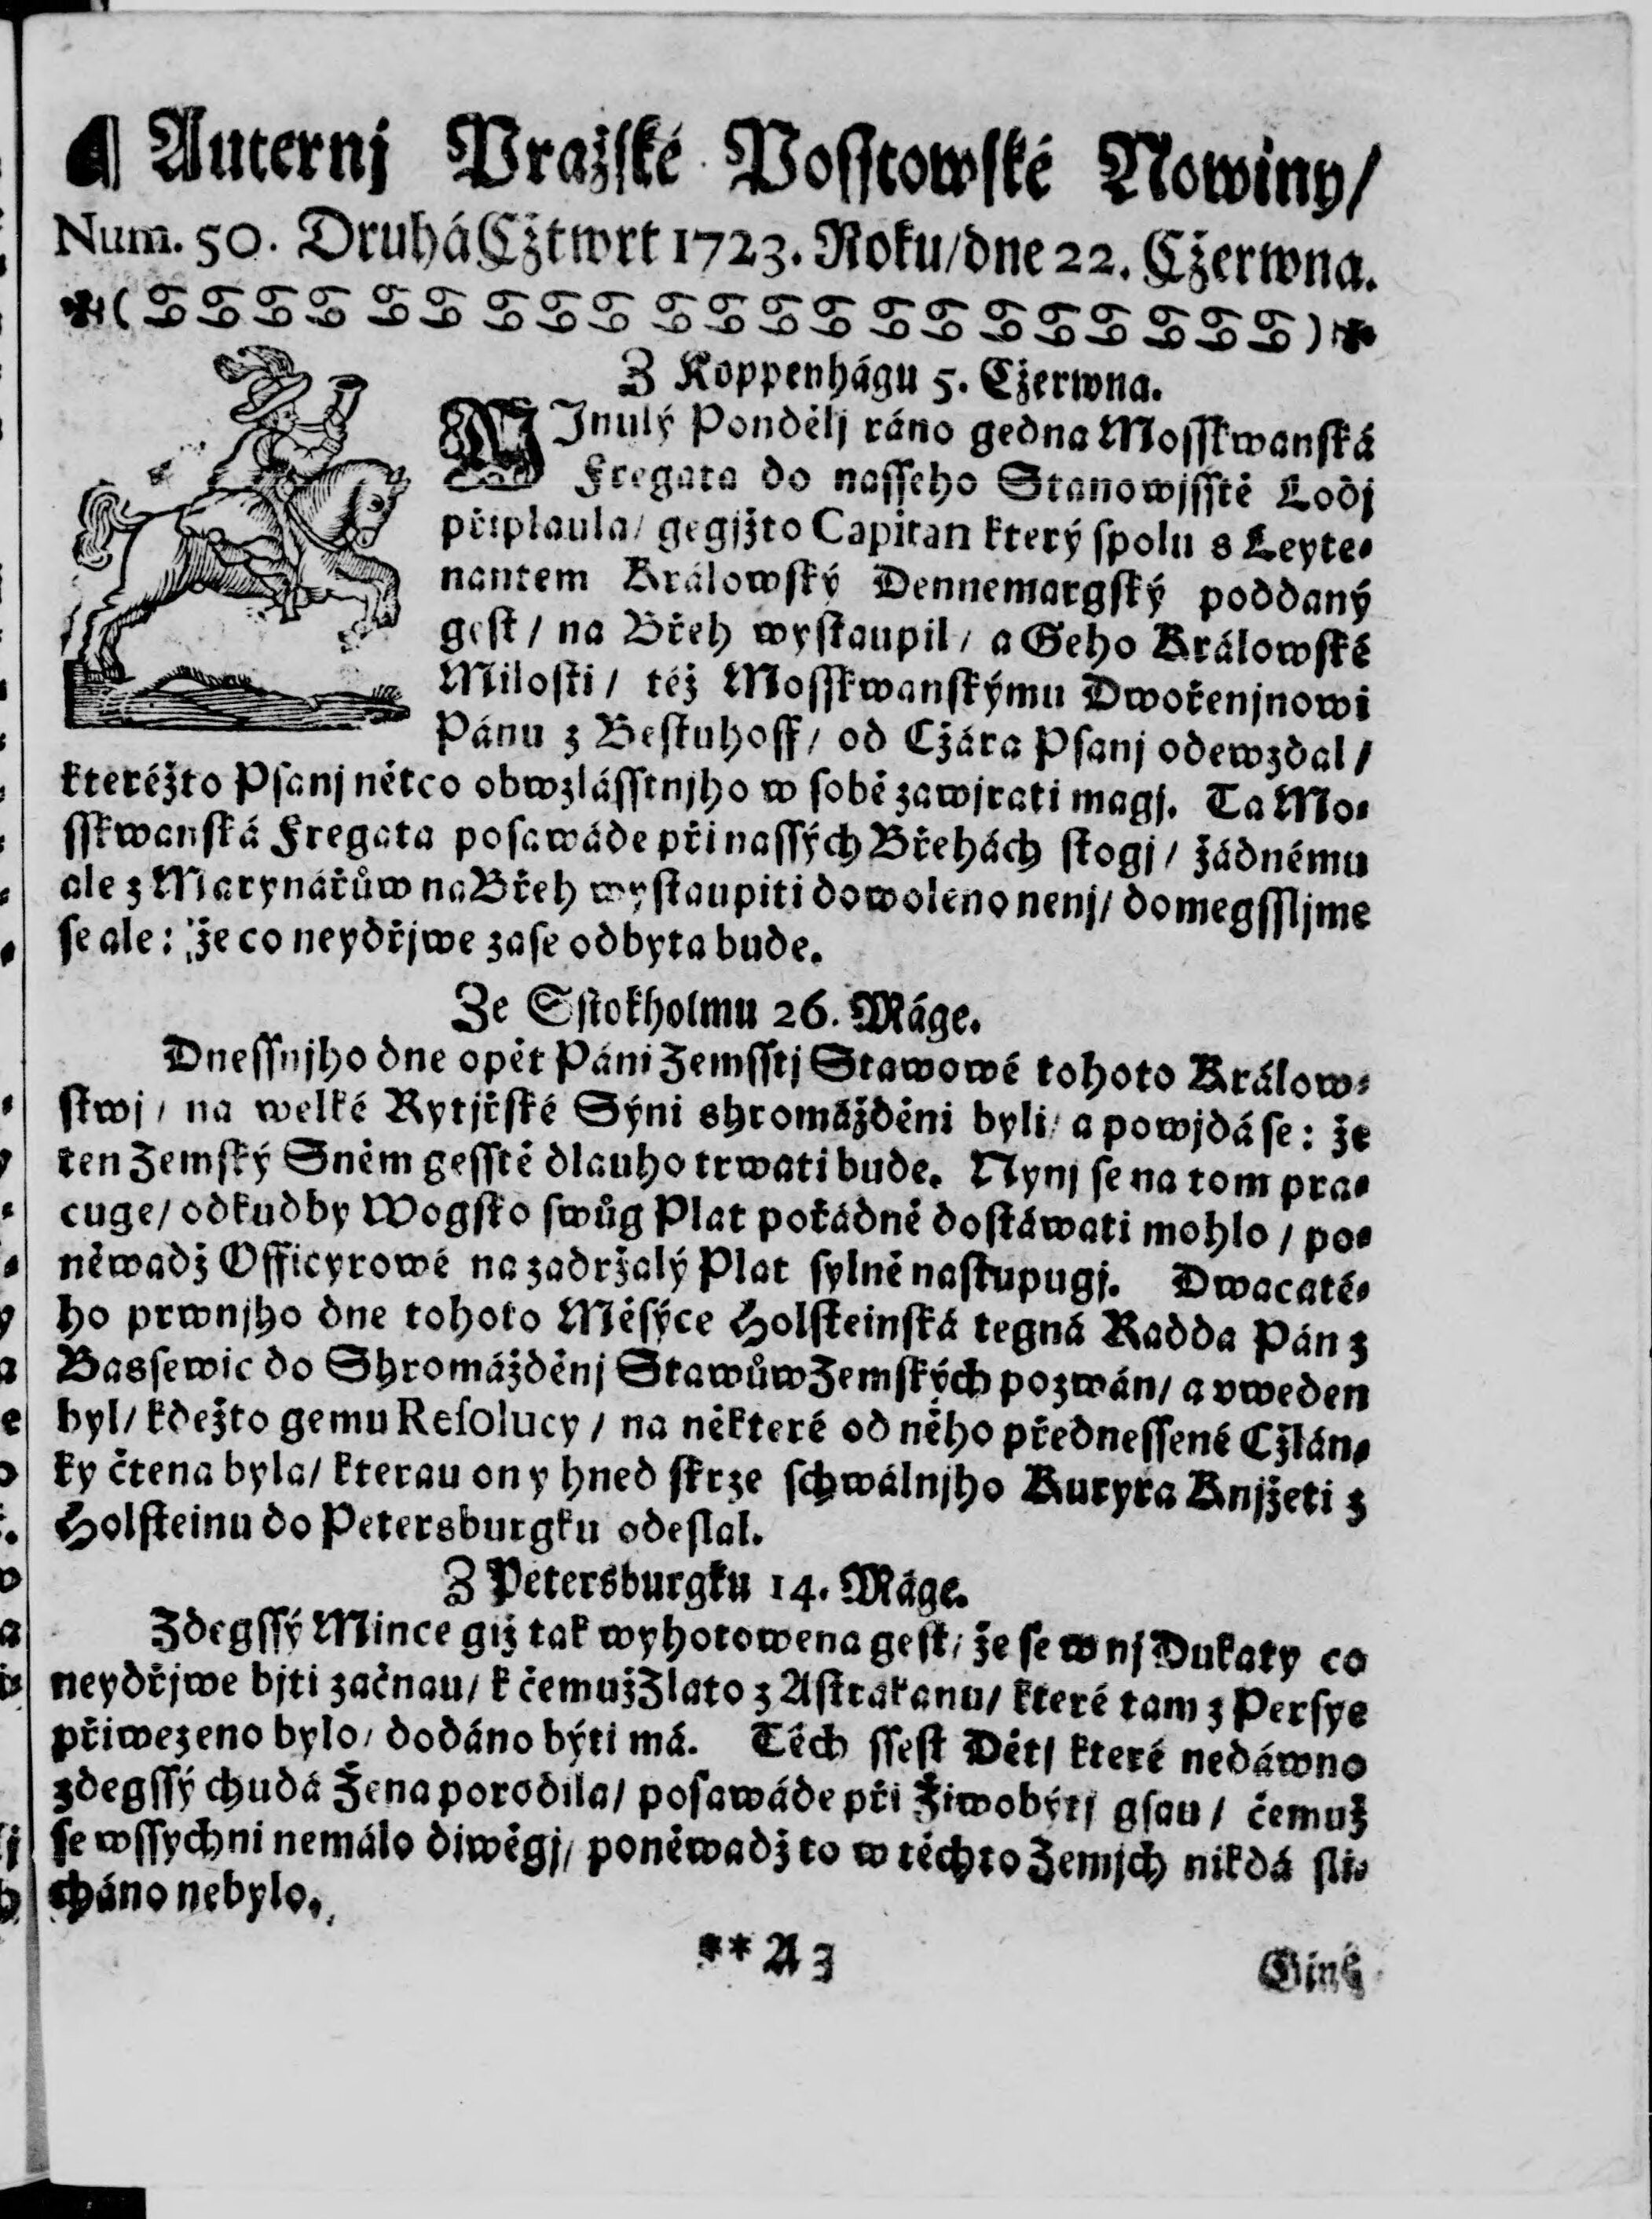 ¶ Auternj Pražské Posstowské Nowiny/
Num. 50. Druhá Cžtwrt 1723. Roku/dne 22. Cžerwna.
Z Koppenhágu 5. Cžerwna.
MJnulý Pondělj ráno gedna Mosskwanská
Fregata do nasseho Stanowjsstě Lodj
připlaula/ gegjžto Capitan který spolu s Leyte-
nantem Králowský Dennemargský poddaný
gest / na Břeh wystaupil / a Geho Králowské
Milosti / též Mosskwanskýmu Dwořenjnowi
Pánu z Bestuhoff / od Cžára Psanj odewzdal /
kteréžto Psanj nětco obwzlásstnjho w sobě zawjrati magj. Ta Mo-
sskwanská Fregata posawáde při nassých Břehách stogj / žádnému
ale z Marynářůw na Břeh wystaupiti dowoleno nenj/ domegssljme
se ale: že co neydřjwe zase odbyta bude.
Ze Sstokholmu 26. Máge.
Dnessnjho dne opět Páni Zemsstj Stawowé tohoto Králow-
stwj / na welké Rytjřské Sýni shromážděni byli/ a powjdá se: že
ten Zemský Sněm gesstě dlauho trwati bude. Nynj se na tom pra-
cuge/ odkudby Wogsko swůg Plat pořádně dostáwati mohlo / po-
něwadž Officyrowé na zadržalý Plat sylně nastupugj. Dwacaté-
ho prwnjho dne tohoto Měsýce Holsteinská tegná Radda Pán z
Bassewic do Shromážděnj Stawůw Zemských pozwán/ a vweden
byl/ kdežto gemu Resolucy / na některé od něho přednessené Cžlán-
ky čtena byla/ kterau on y hned skrze schwálnjho Kuryra Knjžeti z
Holsteinu do Petersburgku odeslal.
Z Petersburgku 14. Máge.
Zdegssý Mince giž tak wyhotowena gest/ že se w nj Dukaty co
neydřjwe bjti začnau/ k čemuž Zlato z Astrakanu/ které tam z Persye
přiwezeno bylo/ dodáno býti má. Těch ssest Dětj které nedáwno
zdegssý chudá Žena porodila/ posawáde při Žiwobýtj gsau / čemuž
se wssychni nemálo diwěgj/ poněwadž to w těchto Zemjch nikdá sli-
cháno nebylo.
**A3
Giný